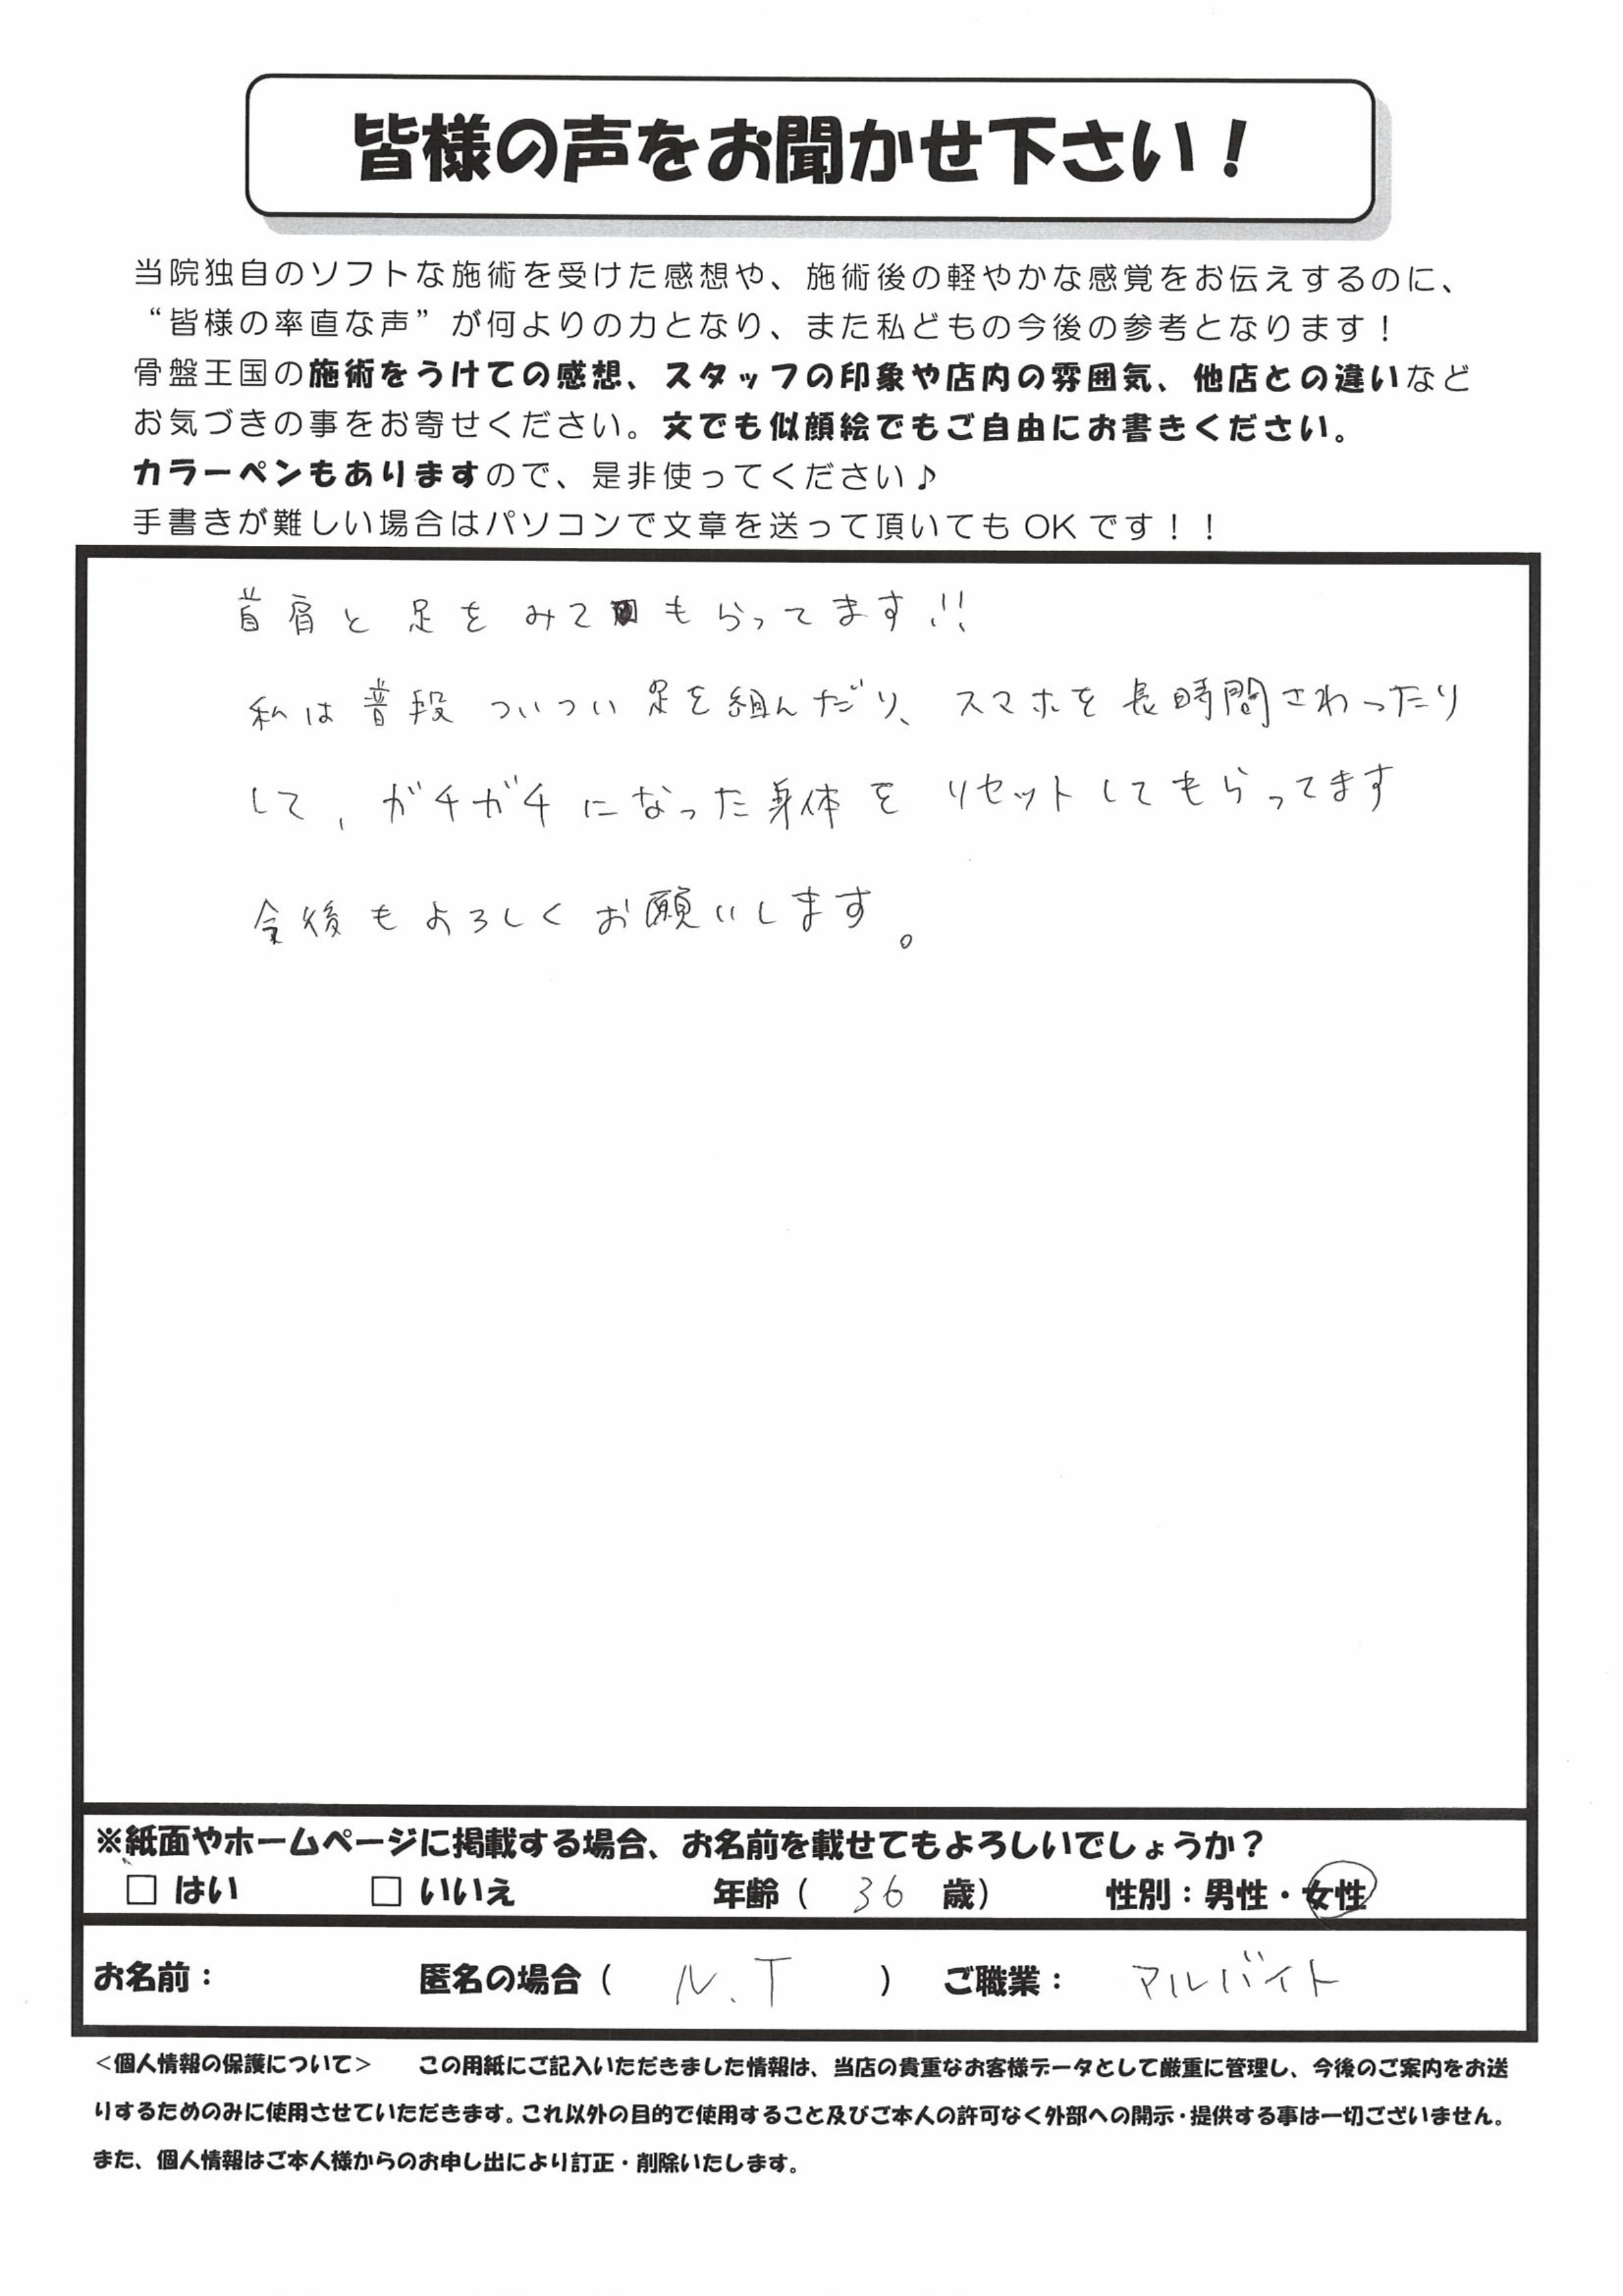 皆様の声をお聞かせ下さい！
当院独自のソフトな施術を受けた感想や、施術後の軽やかな感覚をお伝えするのに、
“皆様の率直な声”が何よりの力となり、また私どもの今後の参考となります！
骨盤王国の施術をうけての感想、スタッフの印象や店内の雰囲気、他店との違いなど
お気づきの事をお寄せください。文でも似顔絵でもご自由にお書きください。
カラーペンもありますので、是非使ってください♪
手書きが難しい場合はパソコンで文章を送って頂いてもOKです！！
首肩と足をみてもらってます!!
私は普段ついつい足を組んだり、スマホを長時間さわったり
して、ガチガチになった身体をリセットしてもらってます
今後もよろしくお願いします。
※紙面やホームページに掲載する場合、お名前を載せてもよろしいでしょうか？
□ はい　□ いいえ　年齢（ 36 歳）　性別：男性・女性
お名前：　匿名の場合（ N.T ）　ご職業： アルバイト
＜個人情報の保護について＞　この用紙にご記入いただきました情報は、当店の貴重なお客様データとして厳重に管理し、今後のご案内をお送
りするためのみに使用させていただきます。これ以外の目的で使用すること及びご本人の許可なく外部への開示・提供する事は一切ございません。
また、個人情報はご本人様からのお申し出により訂正・削除いたします。